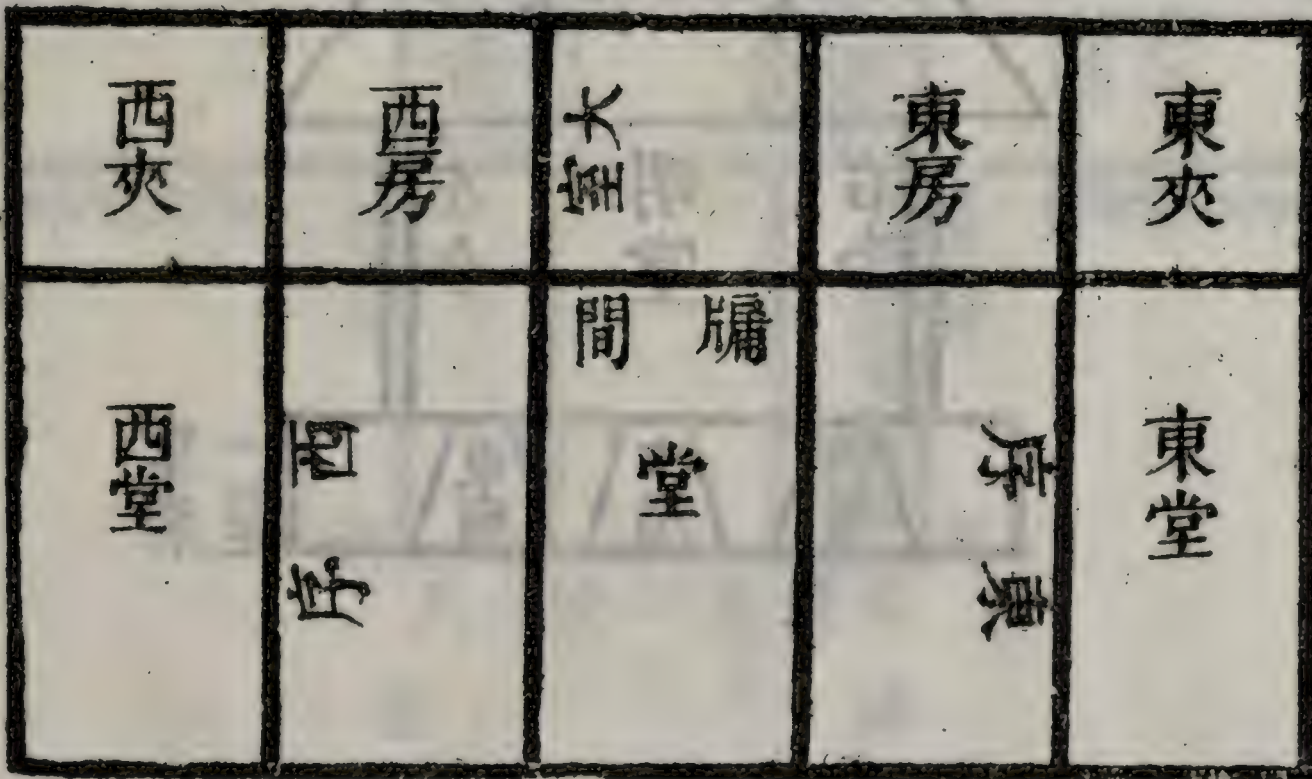 東夾
東房
大室
西房
西夾
牖間
東堂
東序
堂
西序
西堂